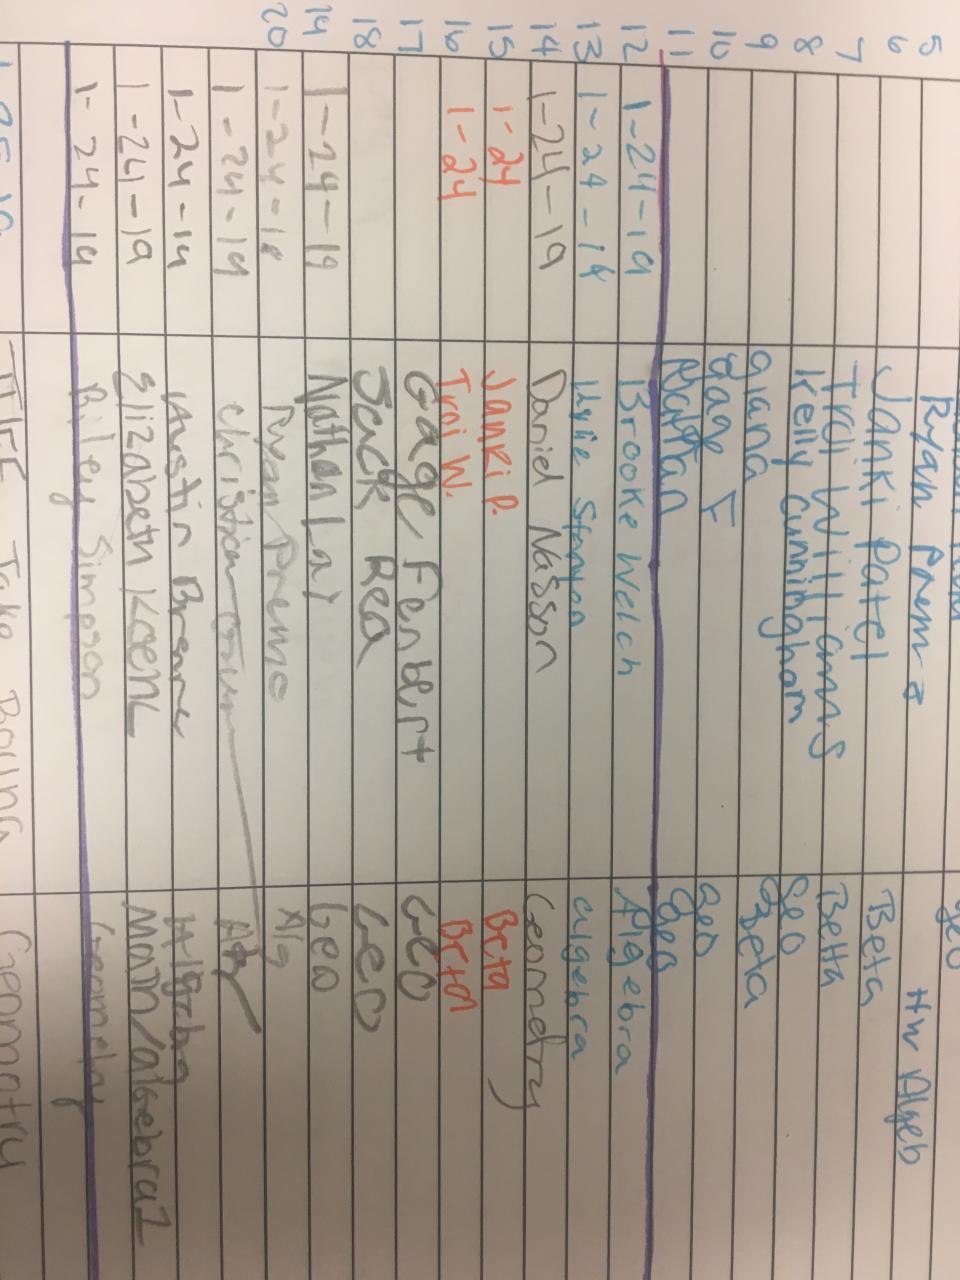 Geo
5 Ryan Preme HW Algeb
6 Janki Patel Beta
7 Trai Williams Beta
8 Kelly Cunningham Geo
9 giana Beta
10 gage F geo
11 Nathan geo
12 1-24-19 Brooke Welch Algebra
13 1-24-19 Stanyon algebra
14 1-24-19 Daniel Nasson Geometry
15 1-24 Janki P. Beta
16 1-24 Trai W. Beta
17 Gage Fenbert GEO
18 Jack Rea GEO
19 1-24-19 Nathan Lay Geo
20 1-24-19 Ryan Preme Alg
1-24-19 Christian Alg
1-24-19 Austin Algebra
1-24-19 Elizabeth Koenc Math/algebra1
1-24-19 Riley Simpson Geometry
1-25-19 Jake Geometry